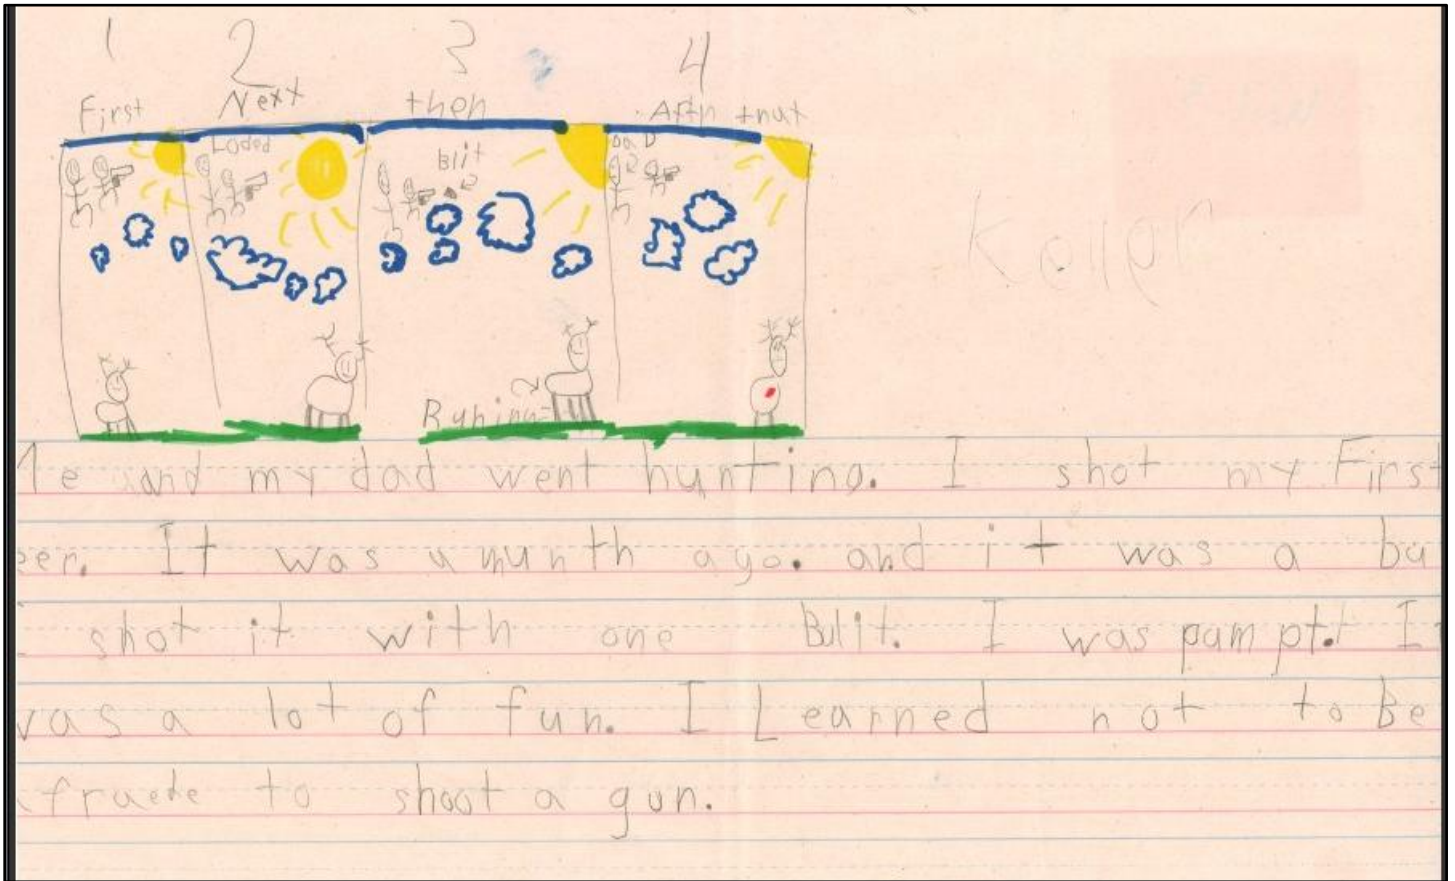 1 2 3 4
First Next then Aftr tnat
Loded Blit DaD
Keller
Runing
Me and my dad went hunting. I shot my First
eer. It was a munth ago. and it was a bu
I shot it with one Bulit. I was pampt. I
was a lot of fun. I Learned not to Be
afraede to shoot a gun.